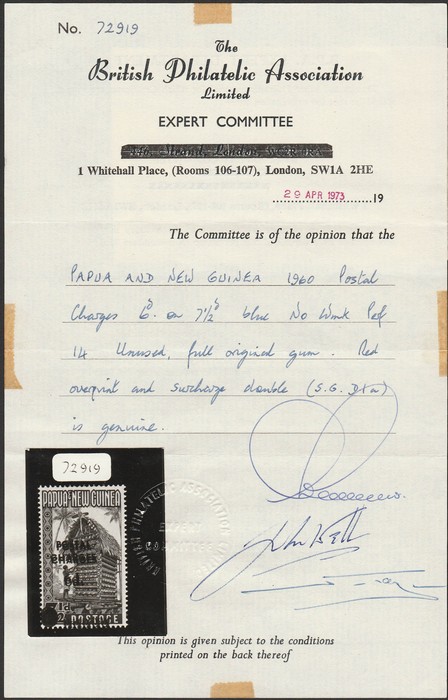 No. 72919
The
British Philatelic Association
Limited
EXPERT COMMITTEE
1 Whitehall Place, (Rooms 106-107), London, SW1A 2HE
29 APR 1973 19
The Committee is of the opinion that the
PAPUA AND NEW GUINEA 1960 Postal
Charges 6d on 7½d blue No Wmk Perf
14 Unused, full original gum. Red
overprint and surcharge double (S.G. D1a)
is genuine.
72919
PAPUA & NEW GUINEA
POSTAL
CHARGES
6d.
POSTAGE
BRITISH PHILATELIC ASSOCIATION LIMITED
EXPERT
COMMITTEE
This opinion is given subject to the conditions
printed on the back thereof